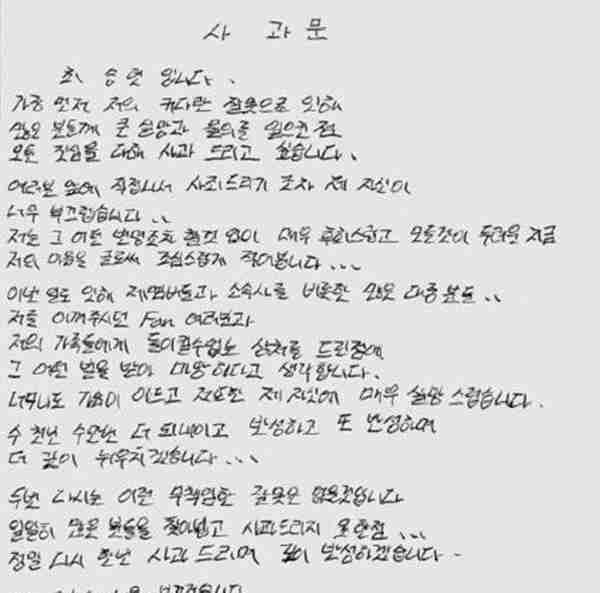 사 과 문
최 승 현 입니다.
가장 먼저 저의 커다란 잘못으로 인해
많은 분들께 큰 실망과 물의를 일으킨 점
모든 진심을 다해 사과 드리고 싶습니다.
여러분 앞에 직접나서 사죄드리기 조차 제 자신이
너무 부끄럽습니다..
저는 그 어떤 변명조차 할것 없이 매우 후회스럽고 모든것이 두려운 지금
저의 마음을 글로써 조심스럽게 적어봅니다...
이번 일로 인해 제 멤버들과 소속사를 비롯한 많은 대중분들..
저를 아껴주시던 Fan 여러분과
저의 가족들에게 돌이킬수없는 상처를 드린점에
그 어떤 벌을 받아 마땅하다고 생각합니다.
너무나도 가슴이 아프고 저또한 제 자신에 매우 실망 스럽습니다.
수 천번 수만번 더 되내이고 반성하고 또 반성하며
더 깊이 뉘우치겠습니다...
두번 다시는 이런 무책임한 잘못은 없을것입니다
일일히 많은 분들을 찾아뵙고 사과드리지 못한점...
정말 다시 한번 사과 드리며 깊이 반성하겠습니다.
부끄럽습니다